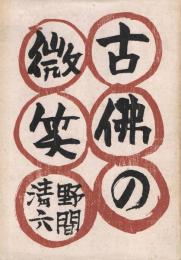 古佛の
微笑
野間
清六